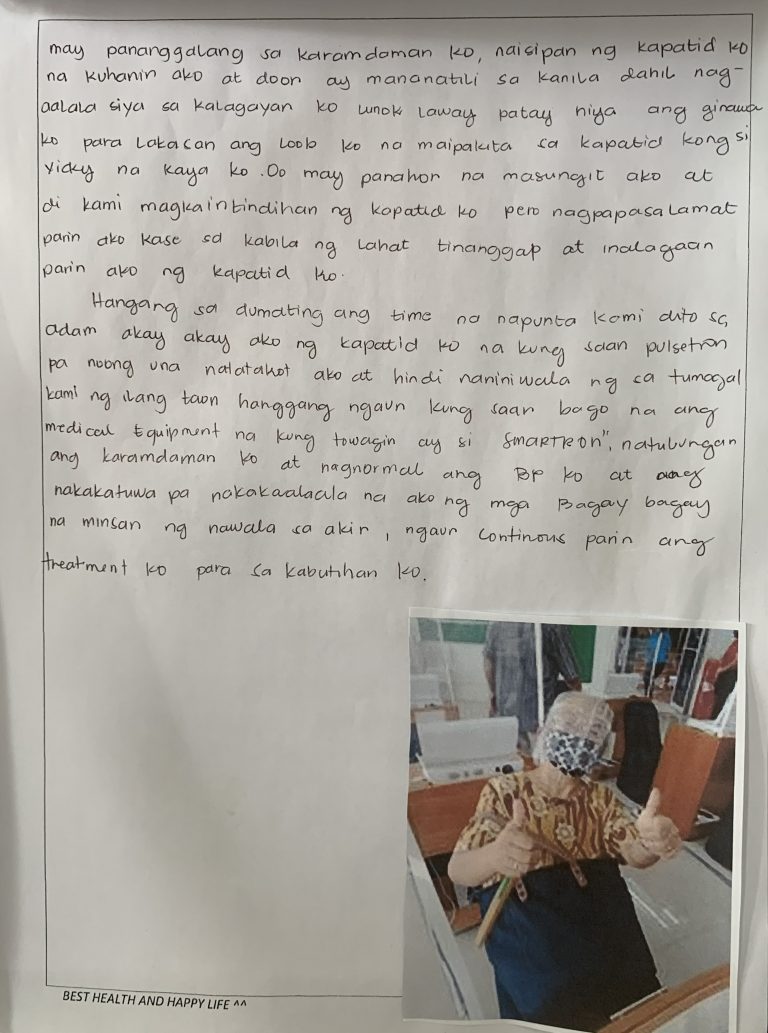 may pananggalang sa karamdaman ko, naisipan ng kapatid ko
na kuhanin ako at doon ay mananatili sa kanila dahil nag-
aalala siya sa kalagayan ko lunok laway patay niya ang ginawa
ko para lakasan ang loob ko na maipakita sa kapatid kong si
vicky na kaya ko. Oo may panahon na masungit ako at
di kami magkaintindihan ng kapatid ko pero nagpapasalamat
parin ako kase sa kabila ng lahat tinanggap at inalagaan
parin ako ng kapatid ko.
Hangang sa dumating ang time na napunta kami dito sa
adam akay akay ako ng kapatid ko na kung saan pulsetron
pa noong una natatakot ako at hindi naniniwala ng sa tumagal
kami ng ilang taon hanggang ngaun kung saan bago na ang
medical Equipment na kung tawagin ay si SMARTRON", natulungan
ang karamdaman ko at nagnormal ang BP ko at
nakakatuwa pa nakakaalaala na ako ng mga Bagay bagay
na minsan ng nawala sa akin, ngaun continous parin ang
treatment ko para sa kabutihan ko.
BEST HEALTH AND HAPPY LIFE ^^